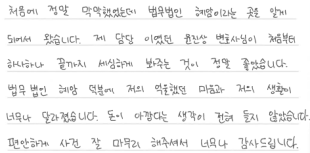 처음에 정말 막막했었는데 법무법인 혜암이라는 곳을 알게
되어서 왔습니다. 제 담당 이였던 윤진상 변호사님이 처음부터
하나하나 끝까지 세심하게 봐주는 것이 정말 좋았습니다.
법무 법인 혜암 덕분에 저의 억울했던 마음과 저의 생활이
너무나 달라졌습니다. 돈이 아깝다는 생각이 전혀 들지 않았습니다.
편안하게 사건 잘 마무리 해주셔서 너무나 감사드립니다.